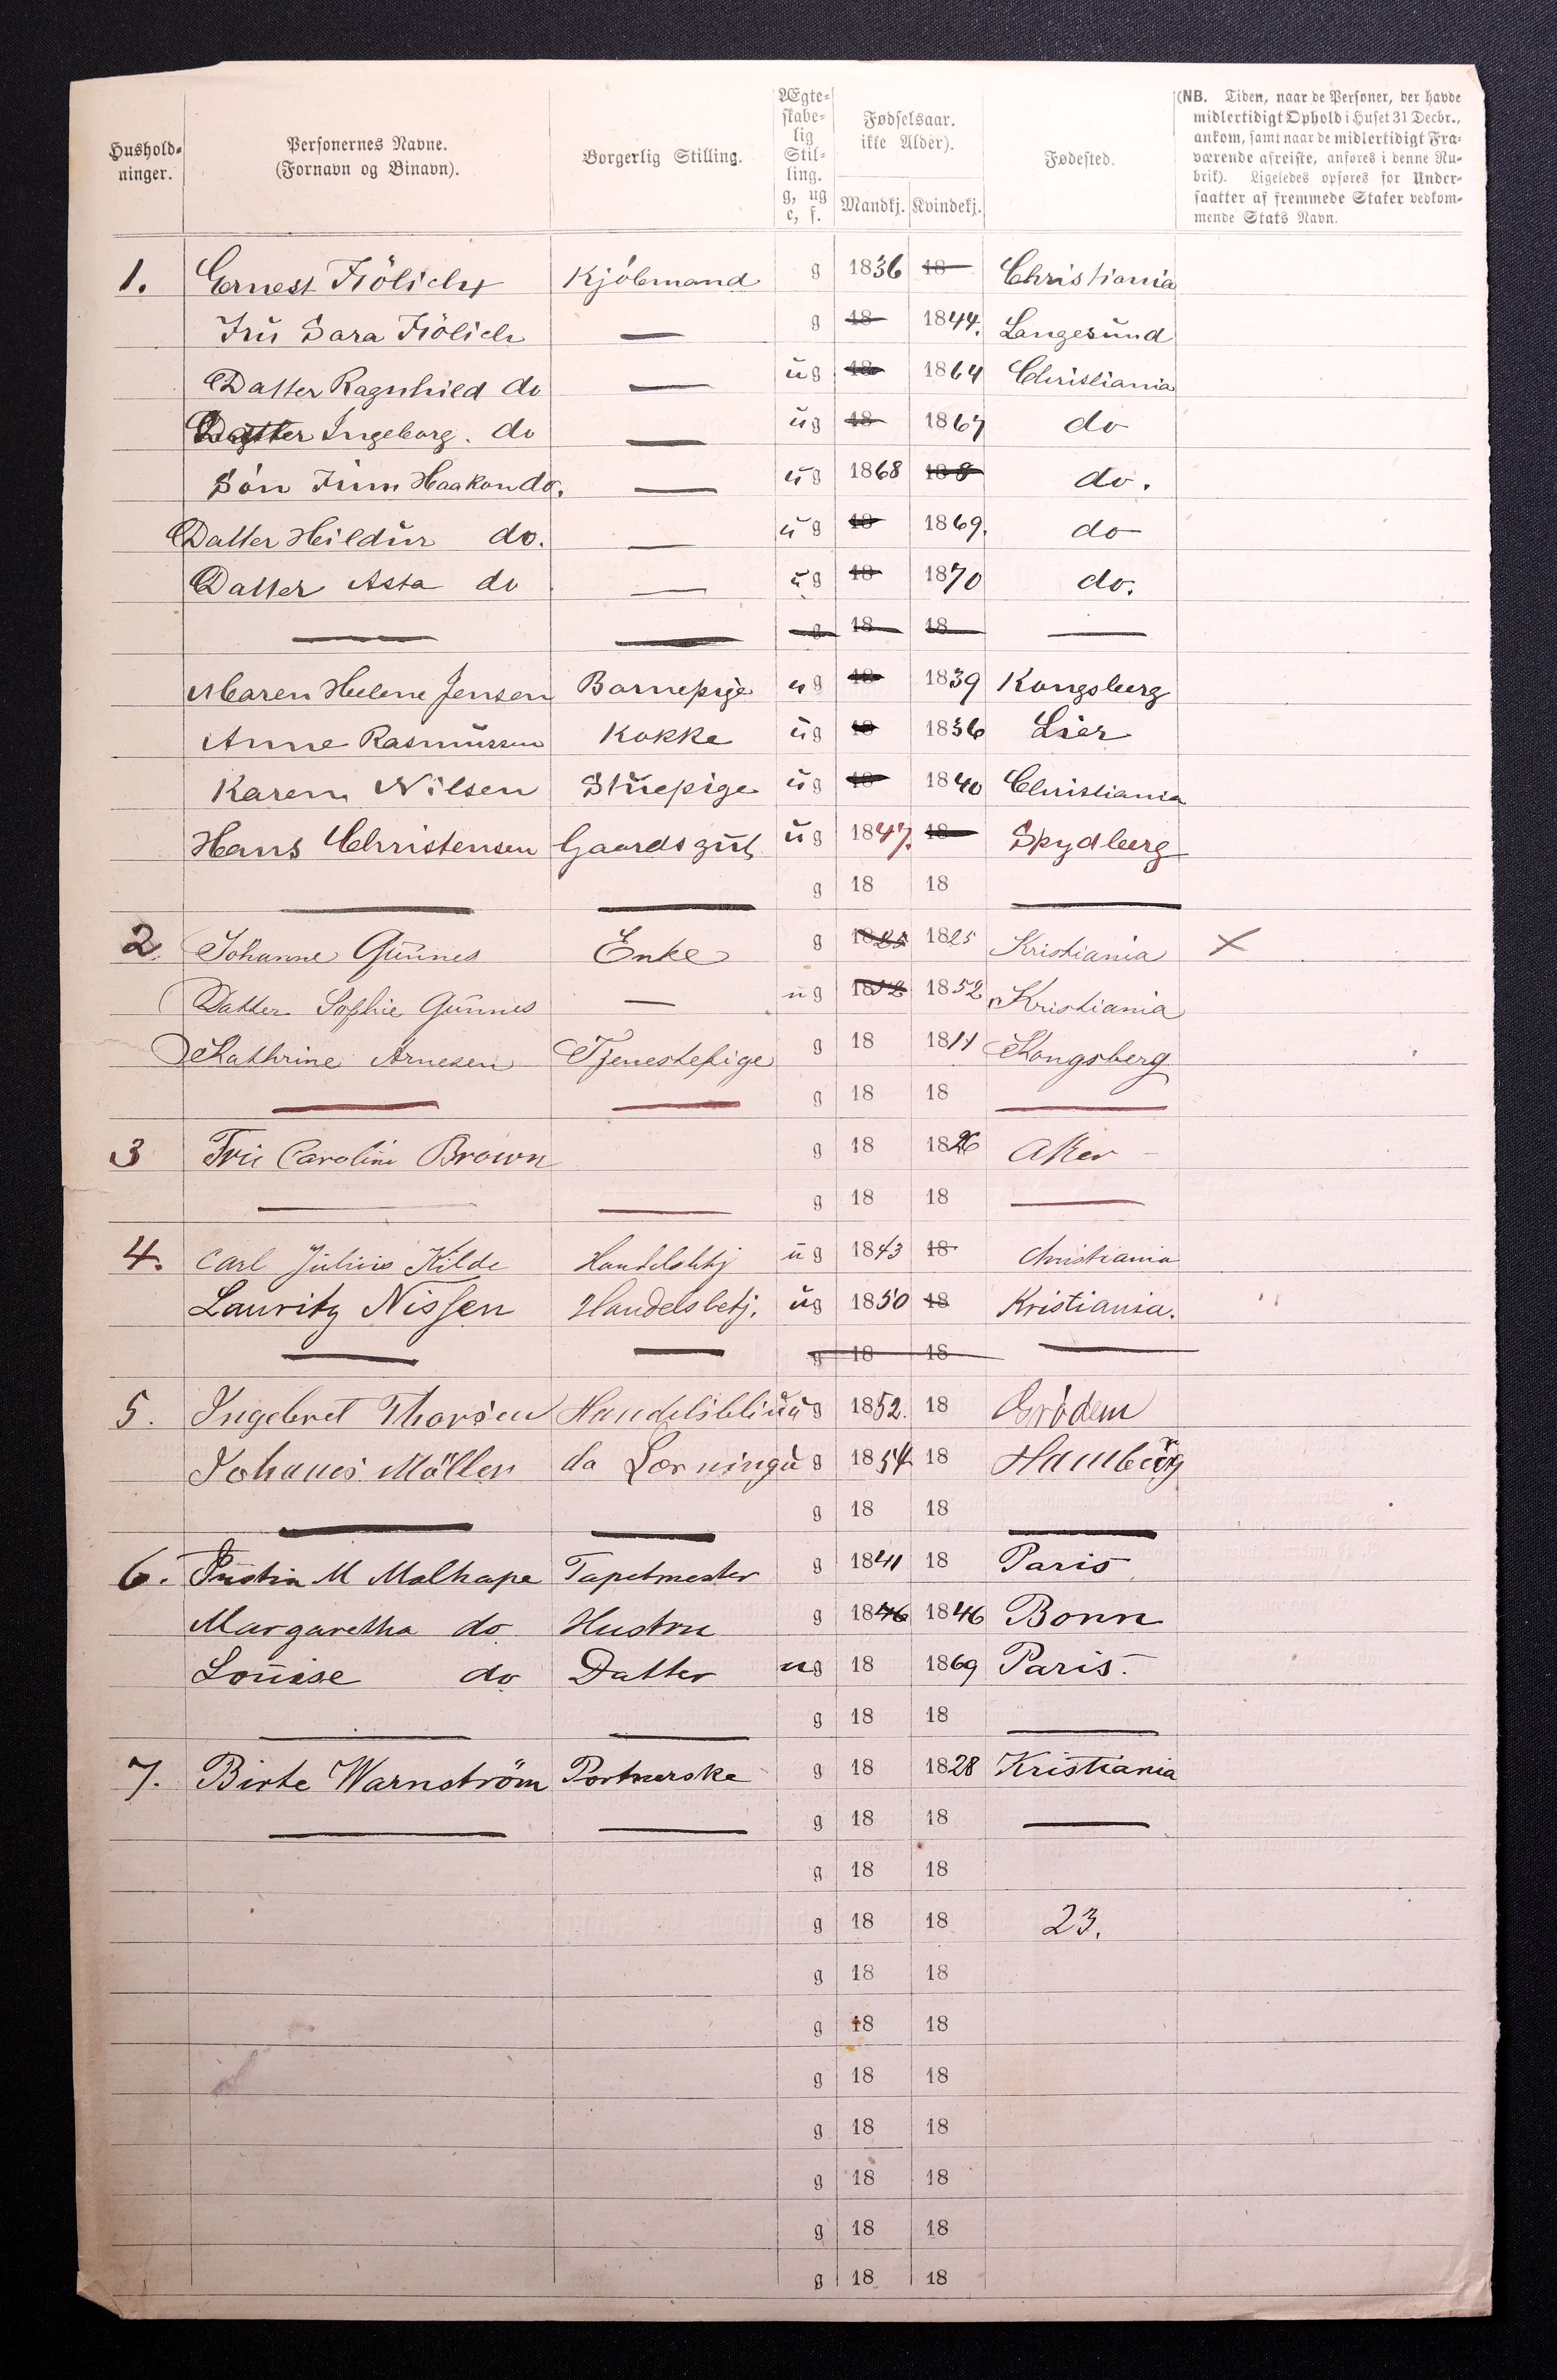 Hushold-
ninger.
Personernes Navne.
(Fornavn og Binavn).
Borgerlig Stilling.
Ægte-
skabe-
lig
Stil-
ling.
g, ug
e, f.
Fødselsaar.
ikke Alder).
Mandkj. Kvindekj.
Fødested.
(NB. Tiden, naar de Personer, der havde
midlertidigt Ophold i Huset 31 Decbr.,
ankom, samt naar de midlertidigt Fra-
værende afreiste, anføres i denne Ru-
brik). Ligeledes opføres for Under-
saatter af fremmede Stater vedkom-
mende Stats Navn.
1. Ernest Frölich Kjöbmand g 1836 18 Christiania
Frü Sara Frölich — g 18 1844. Langesund
Datter Ragnhild do — ug 18 1864 Christiania
Datter Ingeborg. do — ug 18 1867 do
Sön Finn Haakon do. — ug 1868 18 do.
Datter Hildur do. — ug 18 1869. do
Datter Asta do — ug 18 1870 do.
— — g 18 18 —
Maren Helene Jensen Barnepige ug 18 1839 Kongsberg
Anne Rasmussen Kokke ug 18 1836 Lier
Karen Nilsen Stuepige ug 18 1840 Christiania
Hans Christensen Gaardsgut ug 1847. 18 Spydberg
— — g 18 18 —
2. Johanne Gunnes Enke g 1825 1825 Kristiania ×
Datter Sophie Gunnes — ug 1852 1852 Kristiania
Kathrine Arnesen Tjenestepige g 18 1811 Kongsberg
— — g 18 18 —
3 Frü Caroline Brown g 18 1826 Aker
— — g 18 18 —
4. Carl Julius Kilde Handelsbtj ug 1843 18 Christiania
Lauritz Nissen Handelsbetj. ug 1850 18 Kristiania.
— — g 18 18 —
5. Ingebret Thorsen ug 1852. 18
Johanes Möller do Lærning ug 1854 18 Hamburg
— — g 18 18 —
6. Justin M Malhape Tapetmester g 1841 18 Paris
Margaretha do Hustru g 1846 1846 Bonn
Louise do Datter ug 18 1869 Paris.
— — g 18 18 —
7. Birte Warnström Portnerske g 18 1828 Kristiania
— — g 18 18 —
g 18 18
g 18 18 23.
g 18 18
g 18 18
g 18 18
g 18 18
g 18 18
g 18 18
g 18 18